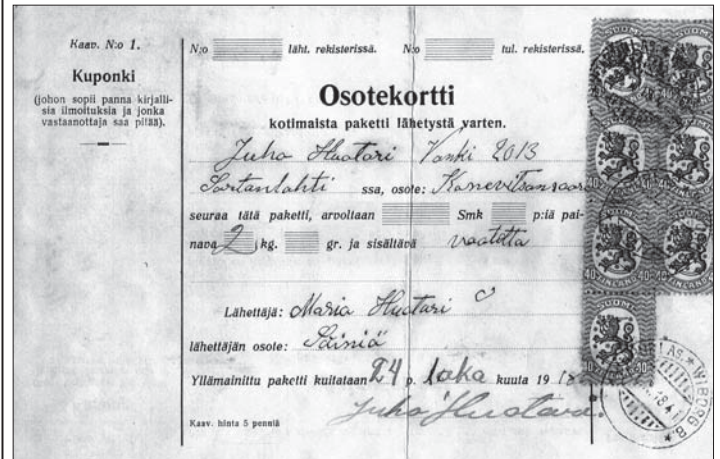 Kaav. N:o 1.
Kuponki
(johon sopii panna kirjalli-
sia ilmoituksia ja jonka
vastaanottaja saa pitää).
N:o läht. rekisterissä. N:o tul. rekisterissä.
Osotekortti
kotimaista paketti lähetystä varten.
Juho Huotari Vanki 2013
Sortanlahti ssa, osote: Konevitsansaari
seuraa tätä paketti, arvoltaan Smk p:iä pai-
nava 2 kg. gr. ja sisältävä vaatetta
Lähettäjä: Maria Huotari
lähettäjän osote: Säiniä
Yllämainittu paketti kuitataan 24 p. loka kuuta 1918
Juho Huotari
Kaav. hinta 5 penniä
SUOMI
40 40
FINLAND
WIBORG